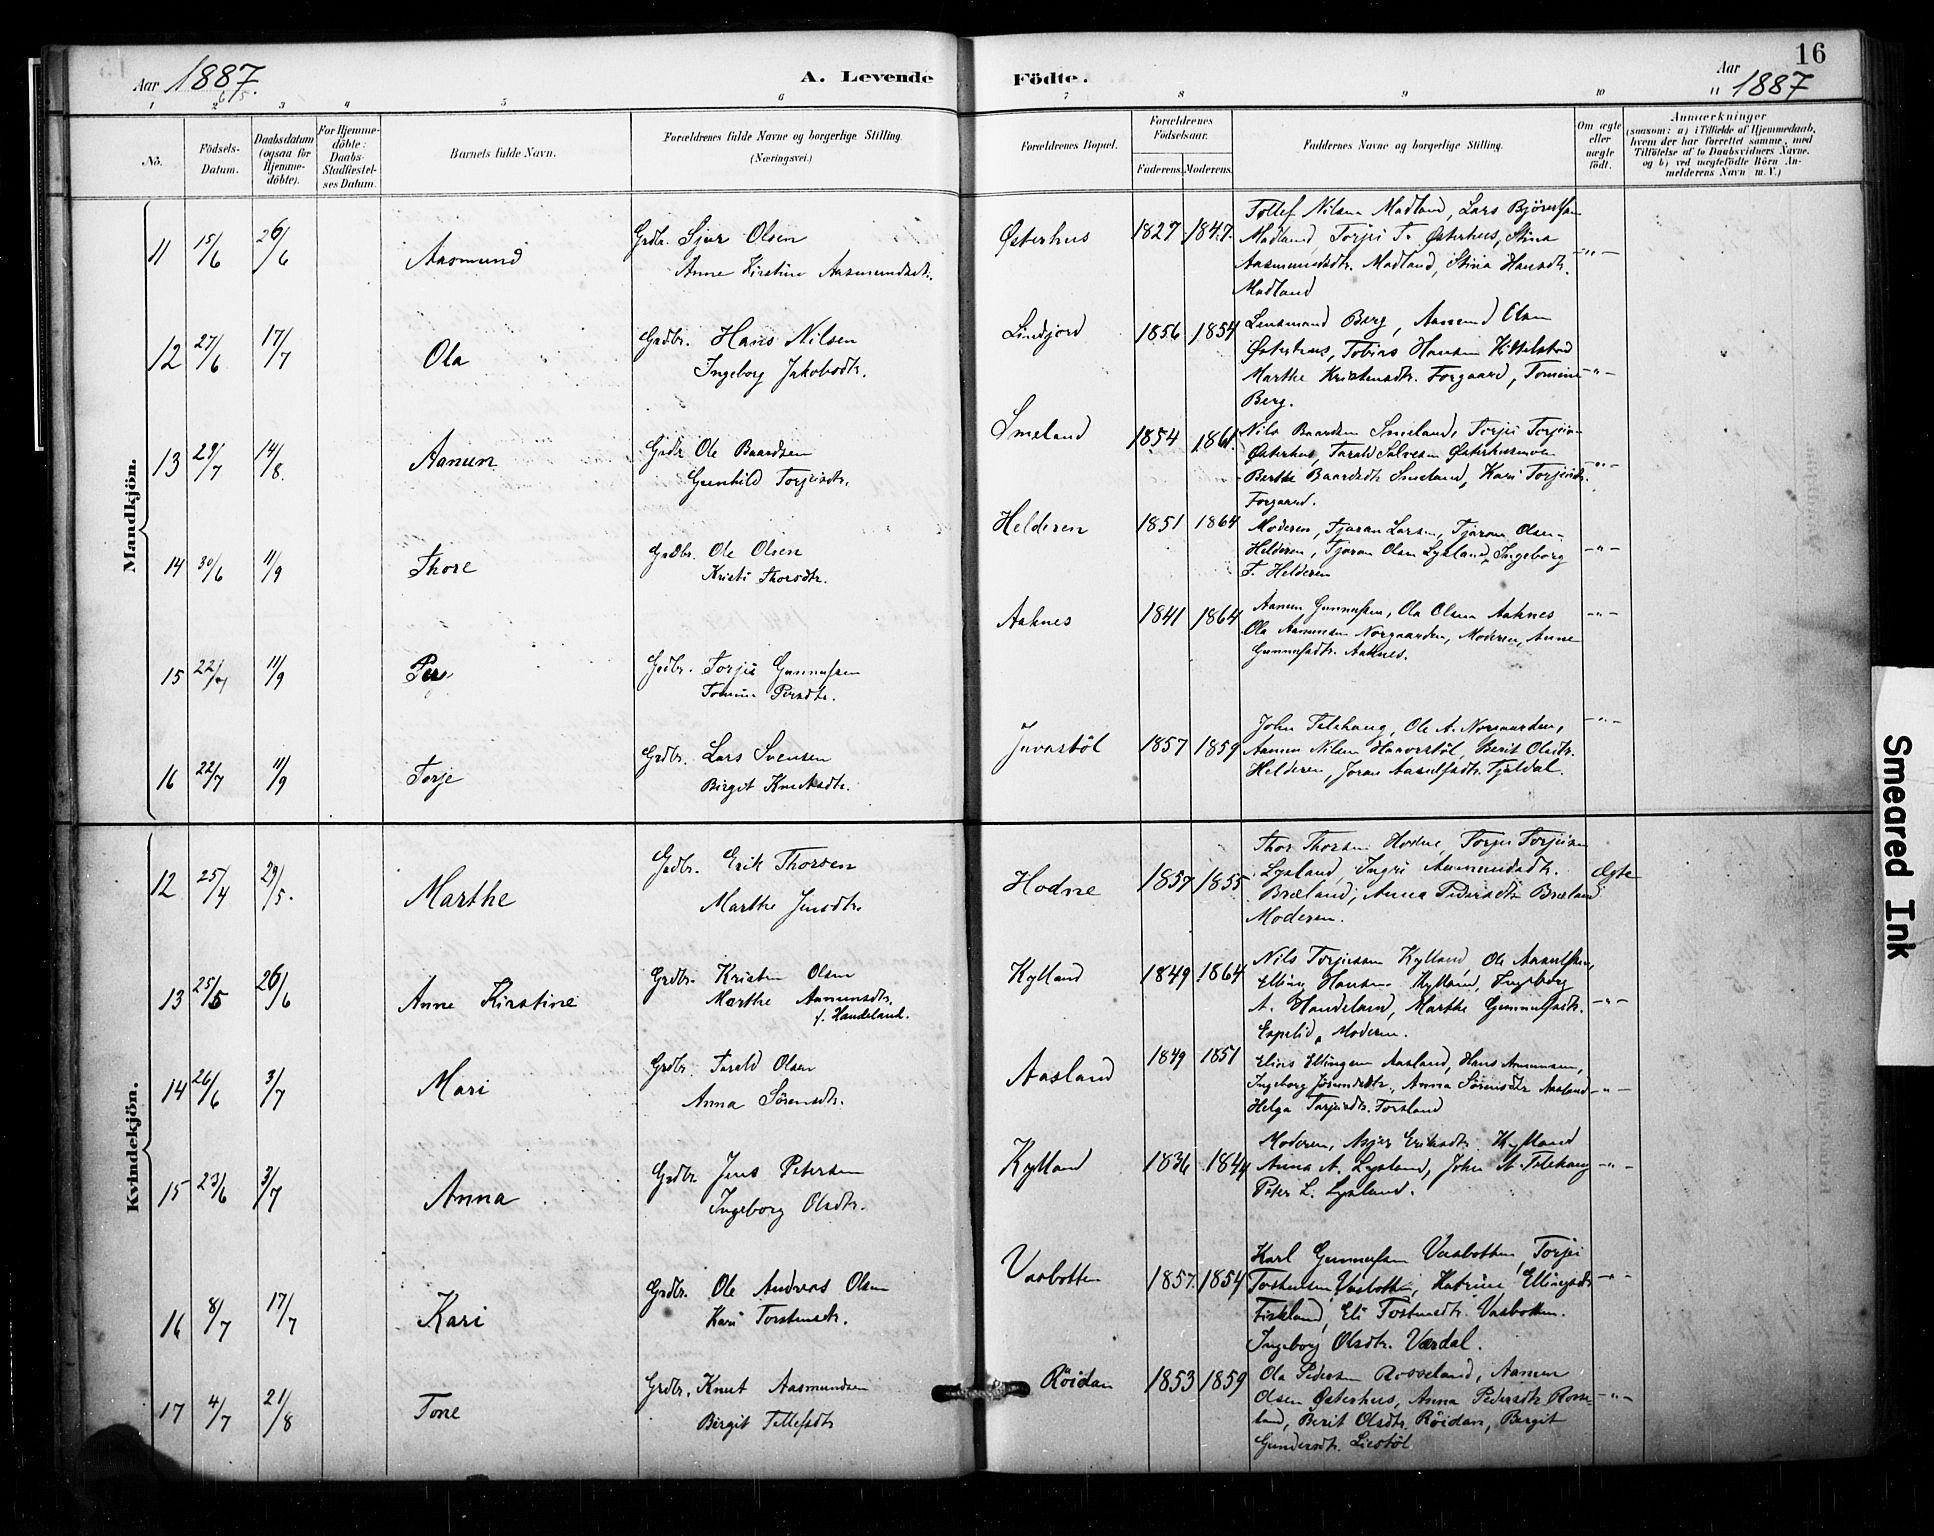 Aar 1887.
6/5
A. Levende
Födte.
Aar
" 1887
16
1 2 3 4 5 6 7 8 9 10
No.
Födsels-
Datum.
Daabsdatum
(ogsaa for
Hjemme-
döbte).
For Hjemme-
döbte:
Daabs-
Stadfæstel-
ses Datum.
Barnets fulde Navn.
Forældrenes fulde Navne og borgerlige Stilling.
(Næringsvei.)
Forældrenes Bopæl.
Forældrenes
Födselsaar.
Faderens. Moderens.
Faddernes Navne og borgerlige Stilling.
Om ægte
eller
uægte
født.
Anmærkninger
(saasom: a) i Tilfælde af Hjemmedaab,
hvem der har forrettet samme, med
Tilföielse af to Daabsvidners Navne,
og b) ved uægtefödte Börn An-
melderens Navn m. V.)
Mandkjön.
11 15/6 26/6 Aasmund
Grdbr. Sjur Olsen
Anne Kirstine Aasmundsdtr.
Østerhus 1827 1847.
Tollef Nilsen Madland, Lars Björnsen
Madland, Torjei T. Østerhus, Stina
Aasmundsdtr. Madland, Stina Hansdtr. -"-
Madland
12 27/6 17/7 Ola
Grdbr. Hans Nilsen
Ingeborg Jakobsdtr.
Lindjord 1856 1854
Lensmand Berg, Aanund Olsen
Østerhus, Tobias Hansen Kittelsrud
Marthe Kristensdtr. Forgaard, Tomine -"-
Berg.
13 29/7 14/8. Aanen
Grdbr Ole Baardsen
Gunhild Torjeisdtr.
Smeland 1854 1861
Nils Baardsen Smeland, Torjei Torjeis-
Østerhus, Tarald Salvesen Østerhusmoen
Berthe Baardsdtr Smeland, Kari Torjeisdtr. -"-
Forgaard.
14 30/6 11/9 Thore
Grdbr. Ole Olsen
Kristi Thorsdtr.
Helderen 1851 1864
Moderen, Tjøran Larsen, Tjøran Olsen
Helderen, Tjøran Olsen Lysland, Ingeborg -"-
T. Helderen
15 22/7 11/9 Per
Grdbr. Torjei Gunnufsen
Tomine Persdtr.
Aaknes 1841 1864
Aanen Gunnufsen, Ola Olsen Aaknes -"-
Ola Aanensen Norgaarden, Moderen, Anne
Gunnufsdtr. Aaknes.
16 22/7 11/9 Torje
Grdbr. Lars Svensen
Birgit Knutsdtr.
Juvastöl 1857 1859
John Telehaug, Ole A. Norgaarden, -"-
Aanen Nilsen Haaverstöl, Berit Olsdtr.
Helderen, Joran Aasulfsdtr. Tjeldal.
Kvindekjön.
12 25/4 29/5. Marthe
Grdbr. Erik Thorsen
Marthe Jensdtr.
Hodne 1857 1855
Thor Thorsen Hodne, Torjus Torjeisen
Lysland, Ingri Aanundsdtr. Ægte
Bræland, Anna Pedersdtr Bræland
Moderen.
13 25/5 26/6 Anne Kirstine
Grdbr. Kristen Olsen
Marthe Aanensdtr.
f. Handeland.
Kylland 1849 1864
Nils Torjeisen Kylland, Ole Aasulfsen,
Elling Hansen Kylland, Ingeborg
A. Handeland, Marthe Gunnufsdtr. -"-
Espelid, Moderen.
14 26/6 3/7 Mari
Grdbr. Tarald Olsen
Anna Sörensdtr.
Aasland 1849 1851
Elias Ellingsen Aasland, Hans Aanensen,
Ingeborg Josundsdtr. Anna Sörensdtr Aasland -"-
Helga Tarjeisdtr. Forsland
15 23/6 3/7 Anna
Grdbr Jens Petersen
Ingeborg Olsdtr.
Kylland 1836 1844
Moderen, Asjer Eriksdtr. Kylland
Anna A. Lysland, John A. Telehaug -"-
Peter L. Lysland.
16 8/7 17/7 Kari
Grdbr. Ole Andreas Olsen
Kari Torstensdtr.
Vasbotten 1857. 1854
Karl Gunnufsen Vasbotten, Torjei
Torstensen Vasbotten, Katrine Ellingsdtr -"-
Fiskland, Eli Torstensdtr. Vasbotten.
Ingeborg Olsdtr. Værdal.
17 4/7 21/8 Tone
Grdbr. Knut Aasmundsen
Birgit Tellefsdtr.
Röidan 1853 1859
Ola Pedersen Rosseland, Aanen
Olsen Østerhus, Anna Pedersdtr Rosse- -"-
land, Berit Olsdtr. Röidan, Bergit
Gundersdtr. Liestöl
Smeared Ink